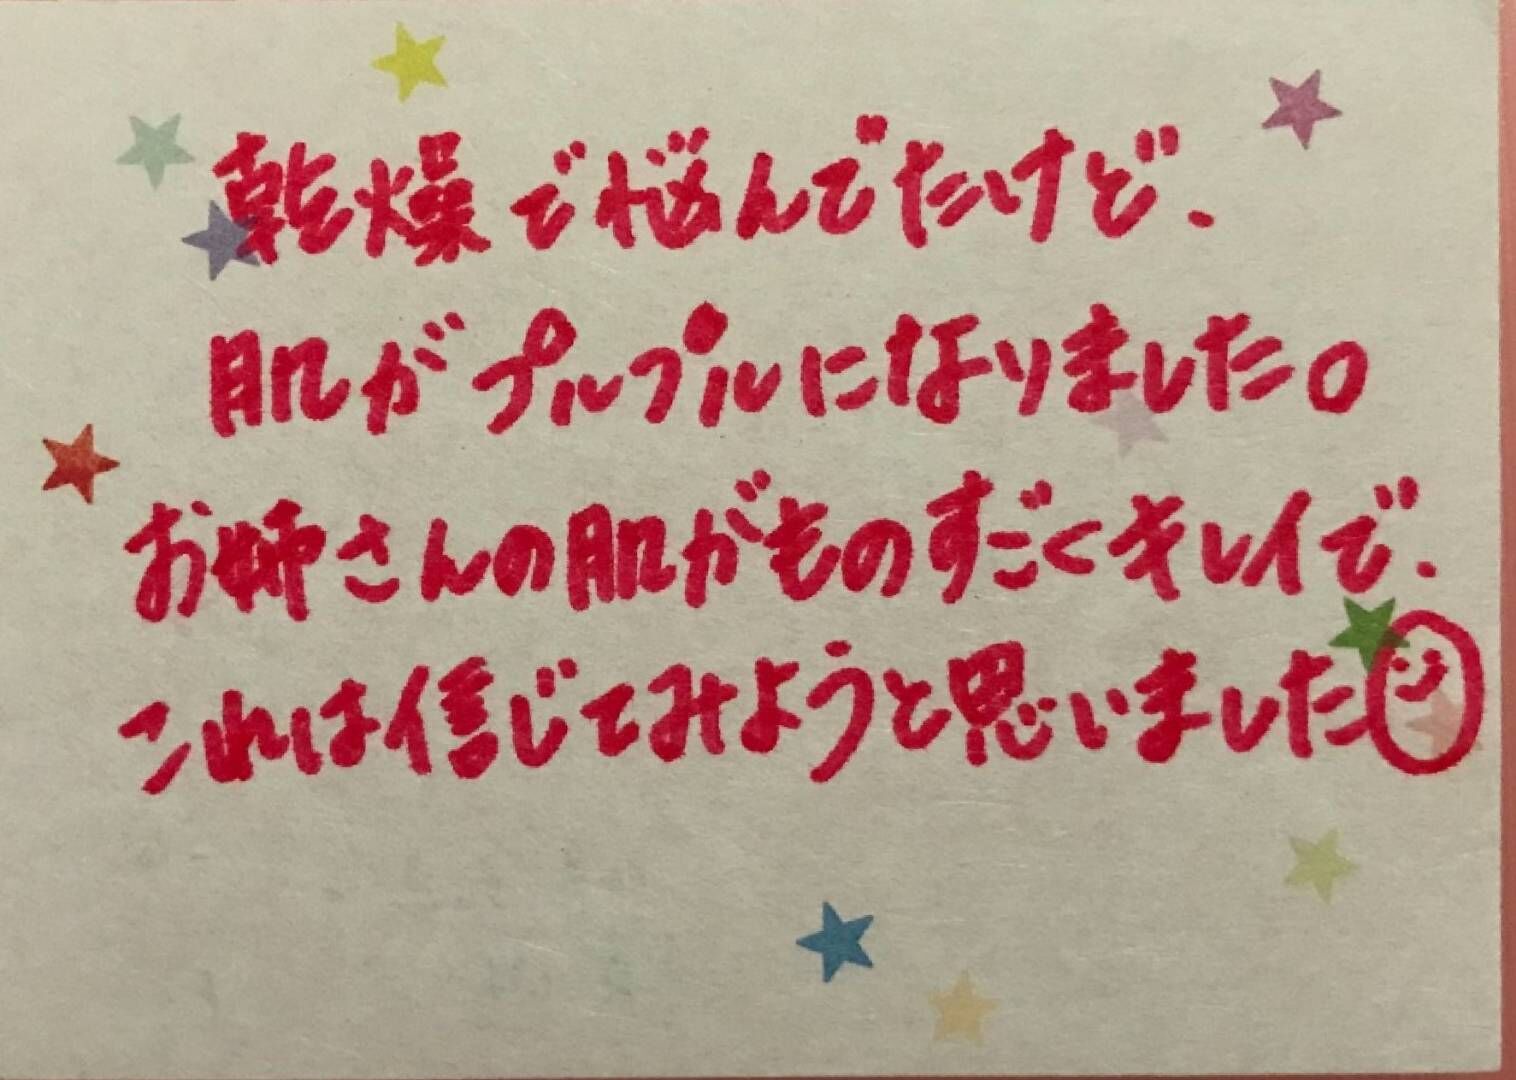 乾燥で悩んでたけど、
肌がプルプルになりました。
お姉さんの肌がものすごくキレイで、
これは信じてみようと思いました